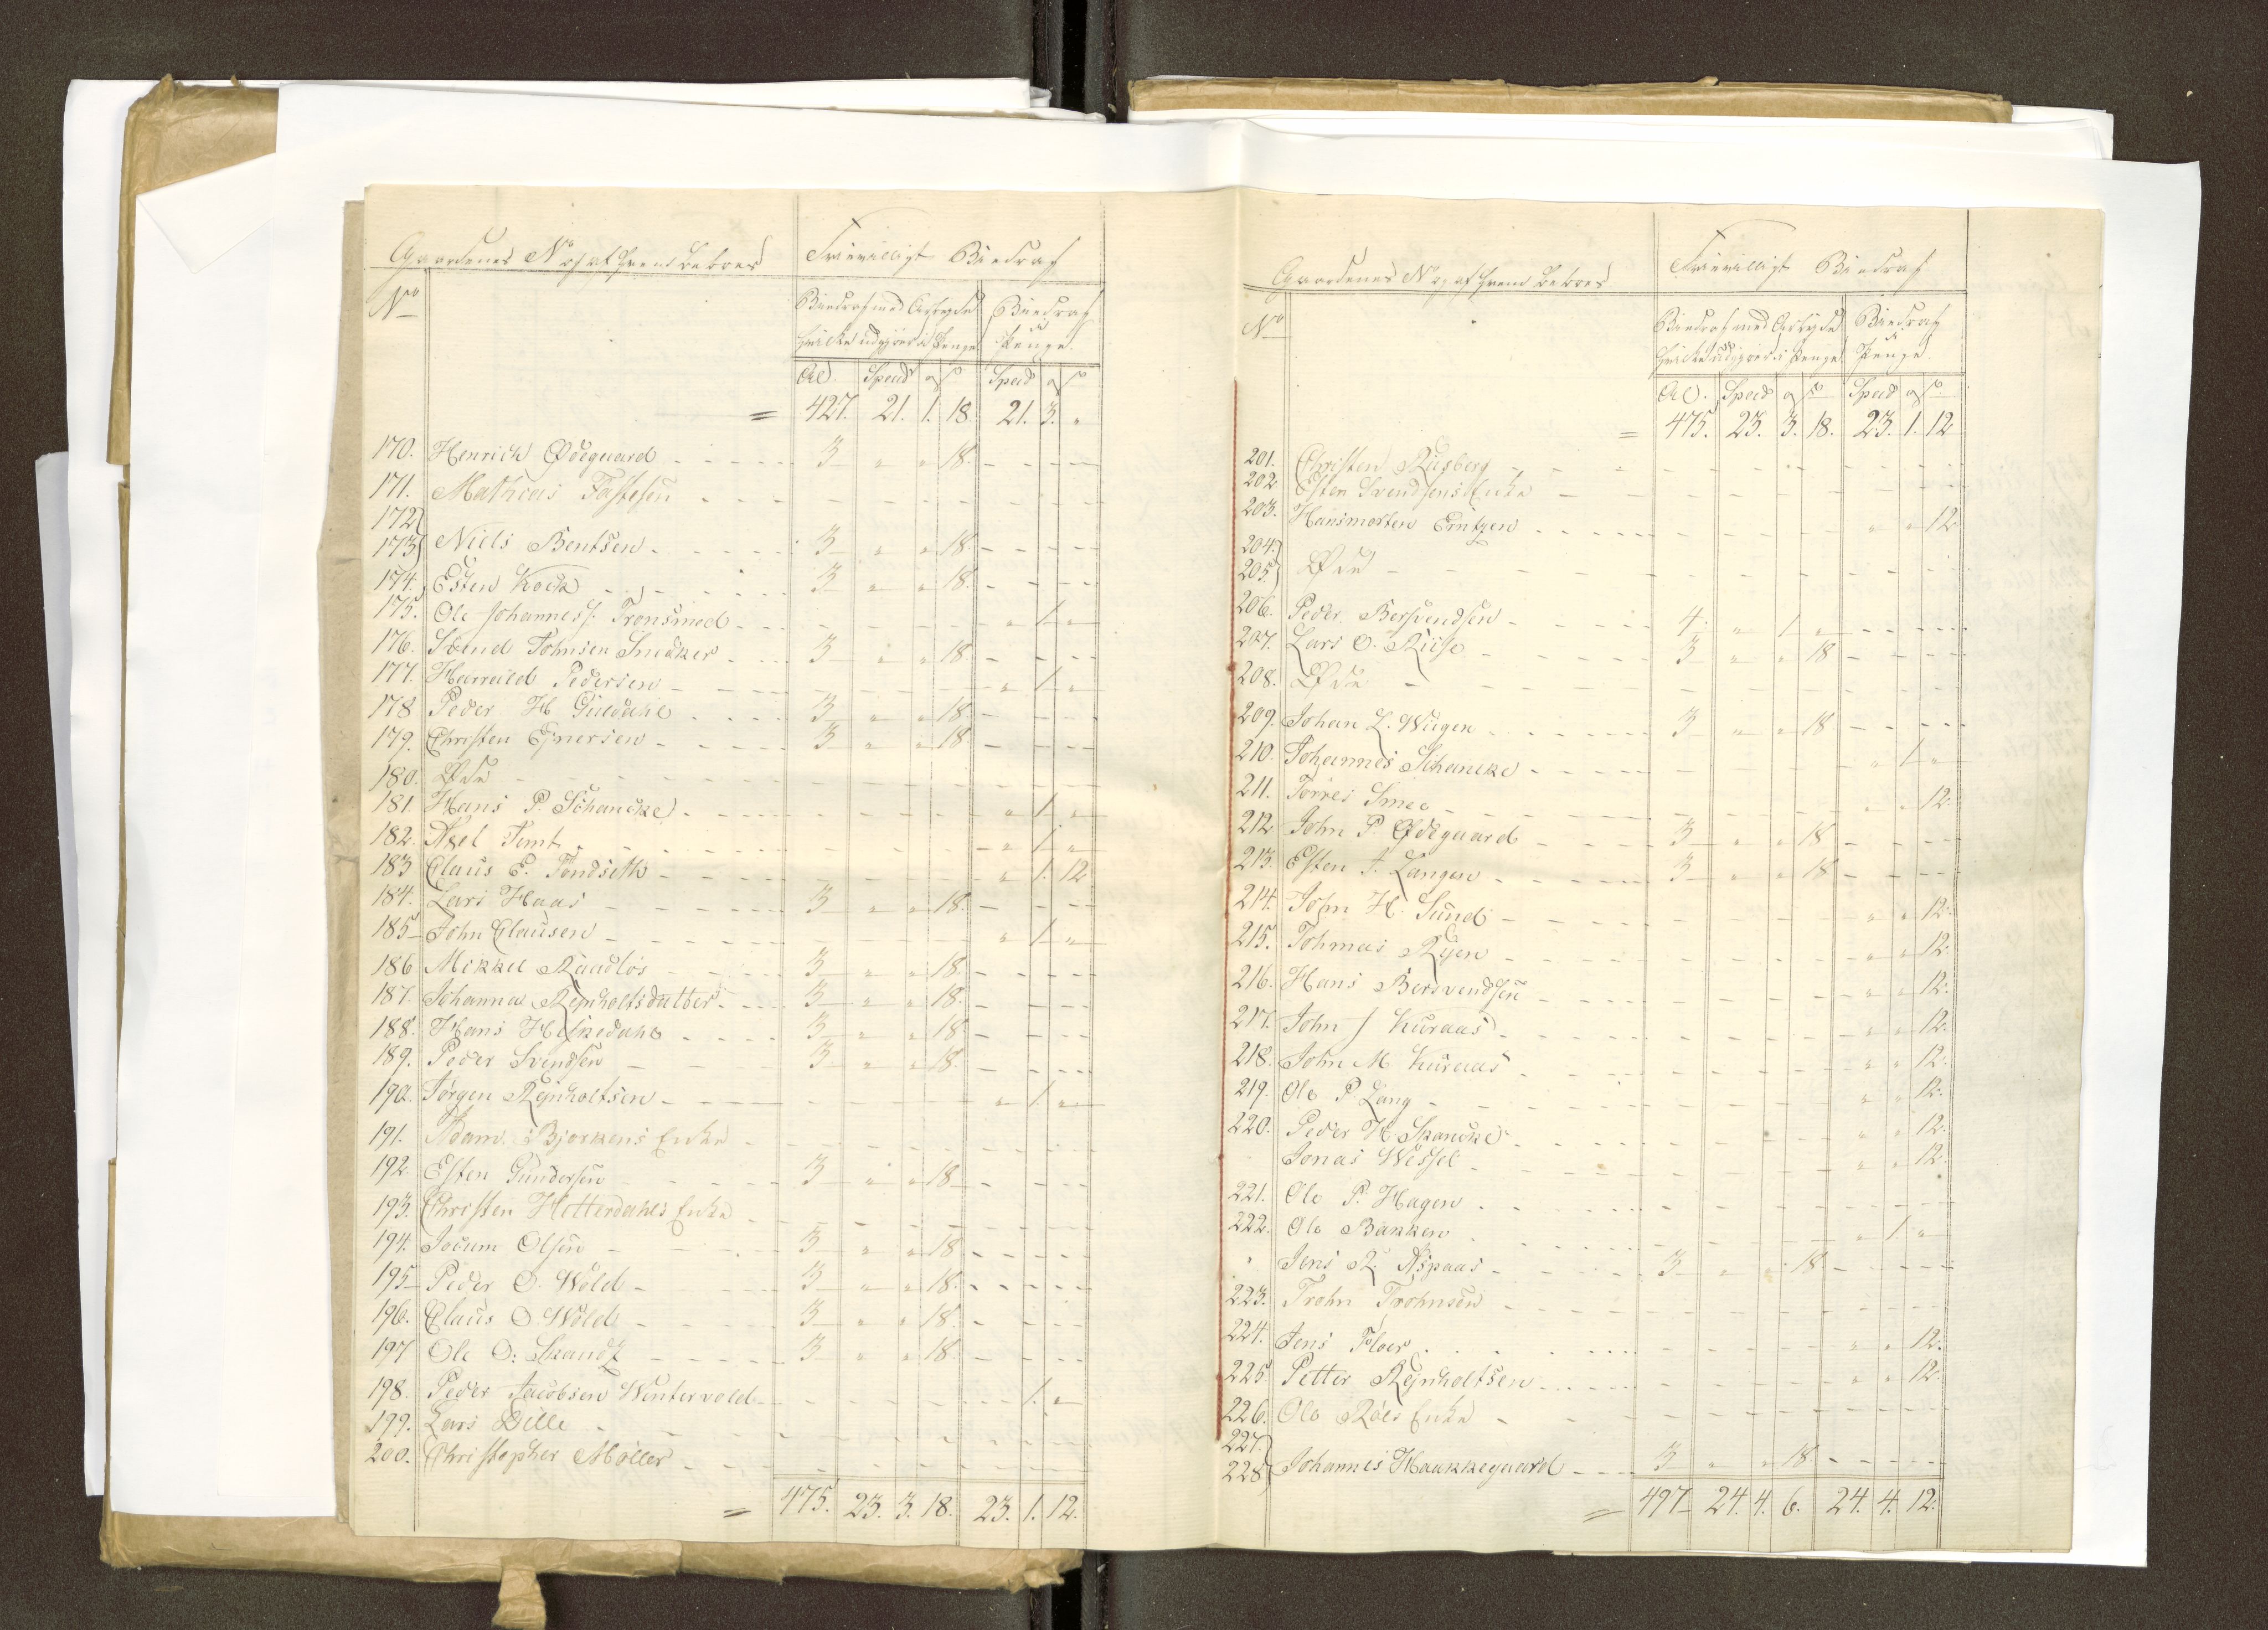 Gaardenes No og af hvem beboes
Frievilligt Biedrag
No
Biedrag med Arbeyde hvilke udgjøre i Penge
Biedrag i Penge
Al. Spd s Spd s
= 427. 21. 1. 18. 21. 3. "
170. Henrich Ødegaard - - - - 3 " " 18. - - - -
171. Mathias Fastesen - - - -
172
173 Niels Bentsen - - - - 3 " " 18. - - - -
174. Esten Kock - - - - 3 " " 18. - - - -
175. Ole Johanness. Tronsmed - - - " 1. "
176. Svend Johnsen Snedker - - 3 " " 18. - - -
177. Harrald Pedersen - - - - " 1. "
178 Peder H Guldahl - - - - 3 " " 18. - - -
179. Christen Ejnersen - - - - 3 " " 18. - - -
180. Øde - - - -
181. Hans P. Schancke - - - - " 1. "
182. Axel Temt - - - - " 1. "
183 Claus E. Tøndseth - - - - " 1. 12
184. Lars Haas - - - - 3 " " 18. - - -
185 John Clausen - - - - " 1. "
186 Mikkel Raadløs - - - 3 " " 18. - - -
187. Johanna Rejnholtsdatter - - 3 " " 18. - - -
188. Hans Heskedahl - - - - 3 " " 18. - - -
189. Peder Svendsen - - - 3 " " 18. - - -
190. Jørgen Rejnholtsen - - - - " 1. "
191. Adam Bjorkens Enke - - - -
192. Esten Gundersen - - - - 3 " " 18 - - -
193. Christen Hitterdahls Enke - - - -
194. Jocum Olsen - - - 3 " " 18 - - - -
195 Peder O. Wold - - - 3 " " 18. - - - -
196. Claus O. Wold - - - 3 " " 18. - - - -
197 Ole O: Skandz - - - - 3 " " 18. - - -
198. Peder Jacobsen Wintervold - - - - 1. "
199. Lars Dille - - - -
200. Christopher Møller - - - -
= 475. 23. 3. 18. 23. 1. 12.
Gaardenes No og af hvem beboes
Frievilligt Biedrag
No
Biedrag med Arbeyde hvilke udgjøre i Penge
Biedrag i Penge
Al. Spd s Spd s
= 475. 23. 3. 18. 23. 1. 12
201. Christen Riisberg - - - -
202 Esten Svendsens Enke - - - -
203. Hansmorten Erntzen - - - - " " 12
204.
205. Øde - - - -
206. Peder Bersvendsen - - - - 4. " 1 " - - - -
207. Lars O. Riise - - - - 3 " " 18 - - - -
208. Øde - - - -
209. Johan L. Wiigen - - - - 3 " " 18 - - - -
210. Johannes Schancke - - - - " 1 "
211. Torres Smed - - - - " " 12.
212. John P. Ødegaard - - - - 3 " " 18 - - - -
213. Esten J. Langen - - - - 3 " " 18 - - - -
214. John H. Sund - - - - " " 12.
215. Tohmas Ryen - - - - " " 12.
216. Hans Bersvendsen - - - - " " 12.
217. John J Kuraas - - - - " " 12.
218. John M Kuraas - - - - " " 12.
219. Ole P. Lang - - - - " " 12.
220. Peder H Skancke - - - - " " 12.
Jonas Wessel - - - - " " 12.
221. Ole P. Hagen - - - -
222. Ole Bakken - - - - " 1 "
" Jens R. Aspaas - - - - 3 " " 18 - - - -
223. Trohn Trohnsen - - - -
224. Jens Floer - - - - " " 12.
225 Petter Rejnholtsen - - - - " " 12.
226. Ole Røes Enke - - - -
227.
228 Johannes Haukkegaard - - - 3 " " 18 - - - -
= 497 24. 4. 6. 24. 4. 12.